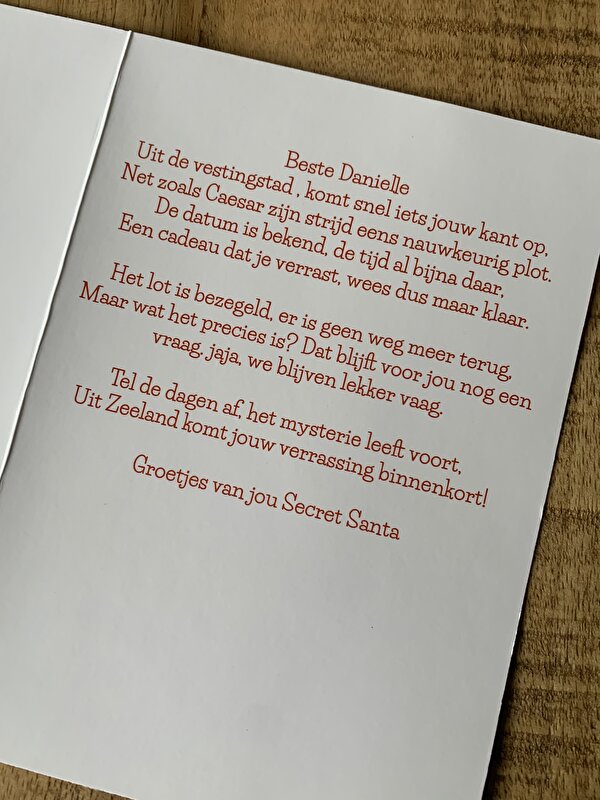 Beste Danielle
Uit de vestingstad , komt snel iets jouw kant op,
Net zoals Caesar zijn strijd eens nauwkeurig plot.
De datum is bekend, de tijd al bijna daar,
Een cadeau dat je verrast, wees dus maar klaar.
Het lot is bezegeld, er is geen weg meer terug,
Maar wat het precies is? Dat blijft voor jou nog een
vraag, jaja, we blijven lekker vaag.
Tel de dagen af, het mysterie leeft voort,
Uit Zeeland komt jouw verrassing binnenkort!
Groetjes van jou Secret Santa